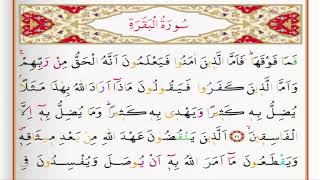 سُورَةُ الْبَقَرَةِ
فَمَا فَوْقَهَا ۚ فَاَمَّا الَّذ۪ينَ اٰمَنُوا فَيَعْلَمُونَ اَنَّهُ الْحَقُّ مِنْ رَبِّهِمْ ۚ
وَاَمَّا الَّذ۪ينَ كَفَرُوا فَيَقُولُونَ مَاذَٓا اَرَادَ اللّٰهُ بِهٰذَا مَثَلًاۢ
يُضِلُّ بِه۪ كَث۪يرًا وَيَهْد۪ي بِه۪ كَث۪يرًا ۜ وَمَا يُضِلُّ بِه۪ٓ اِلَّا
الْفَاسِق۪ينَۙ ﴿٢٦﴾ اَلَّذ۪ينَ يَنْقُضُونَ عَهْدَ اللّٰهِ مِنْ بَعْدِ م۪يثَاقِه۪ۖ
وَيَقْطَعُونَ مَٓا اَمَرَ اللّٰهُ بِه۪ٓ اَنْ يُوصَلَ وَيُفْسِدُونَ فِي